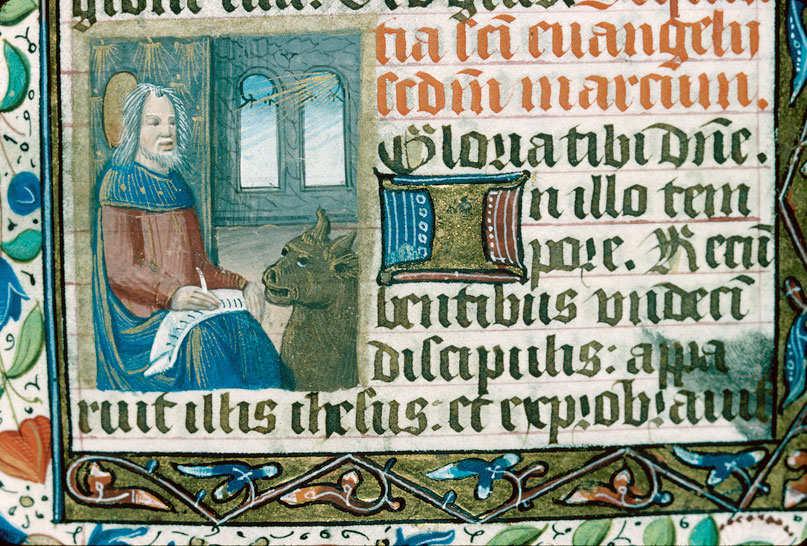 tia sc̄i euangelij
scdm̄ marcum.
Gloria tibi dn̄e.
In illo tem
pore. Recū
bentibus vndeci
discipulis: appa
ruit illis ihesus: et exprobrauit